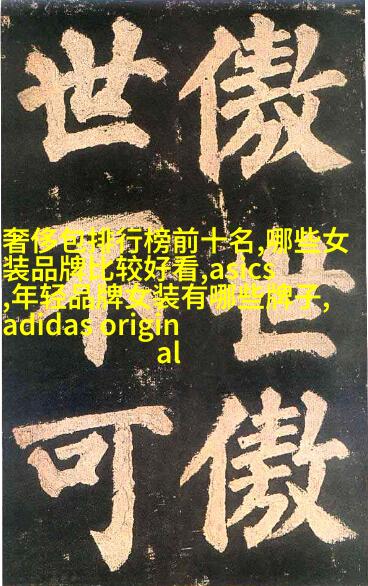 傲世傲
世不可
奢侈包排行榜前十名,哪些女
装品牌比较好看,asics
,年轻品牌女装有哪些牌子,
adidas origin
al